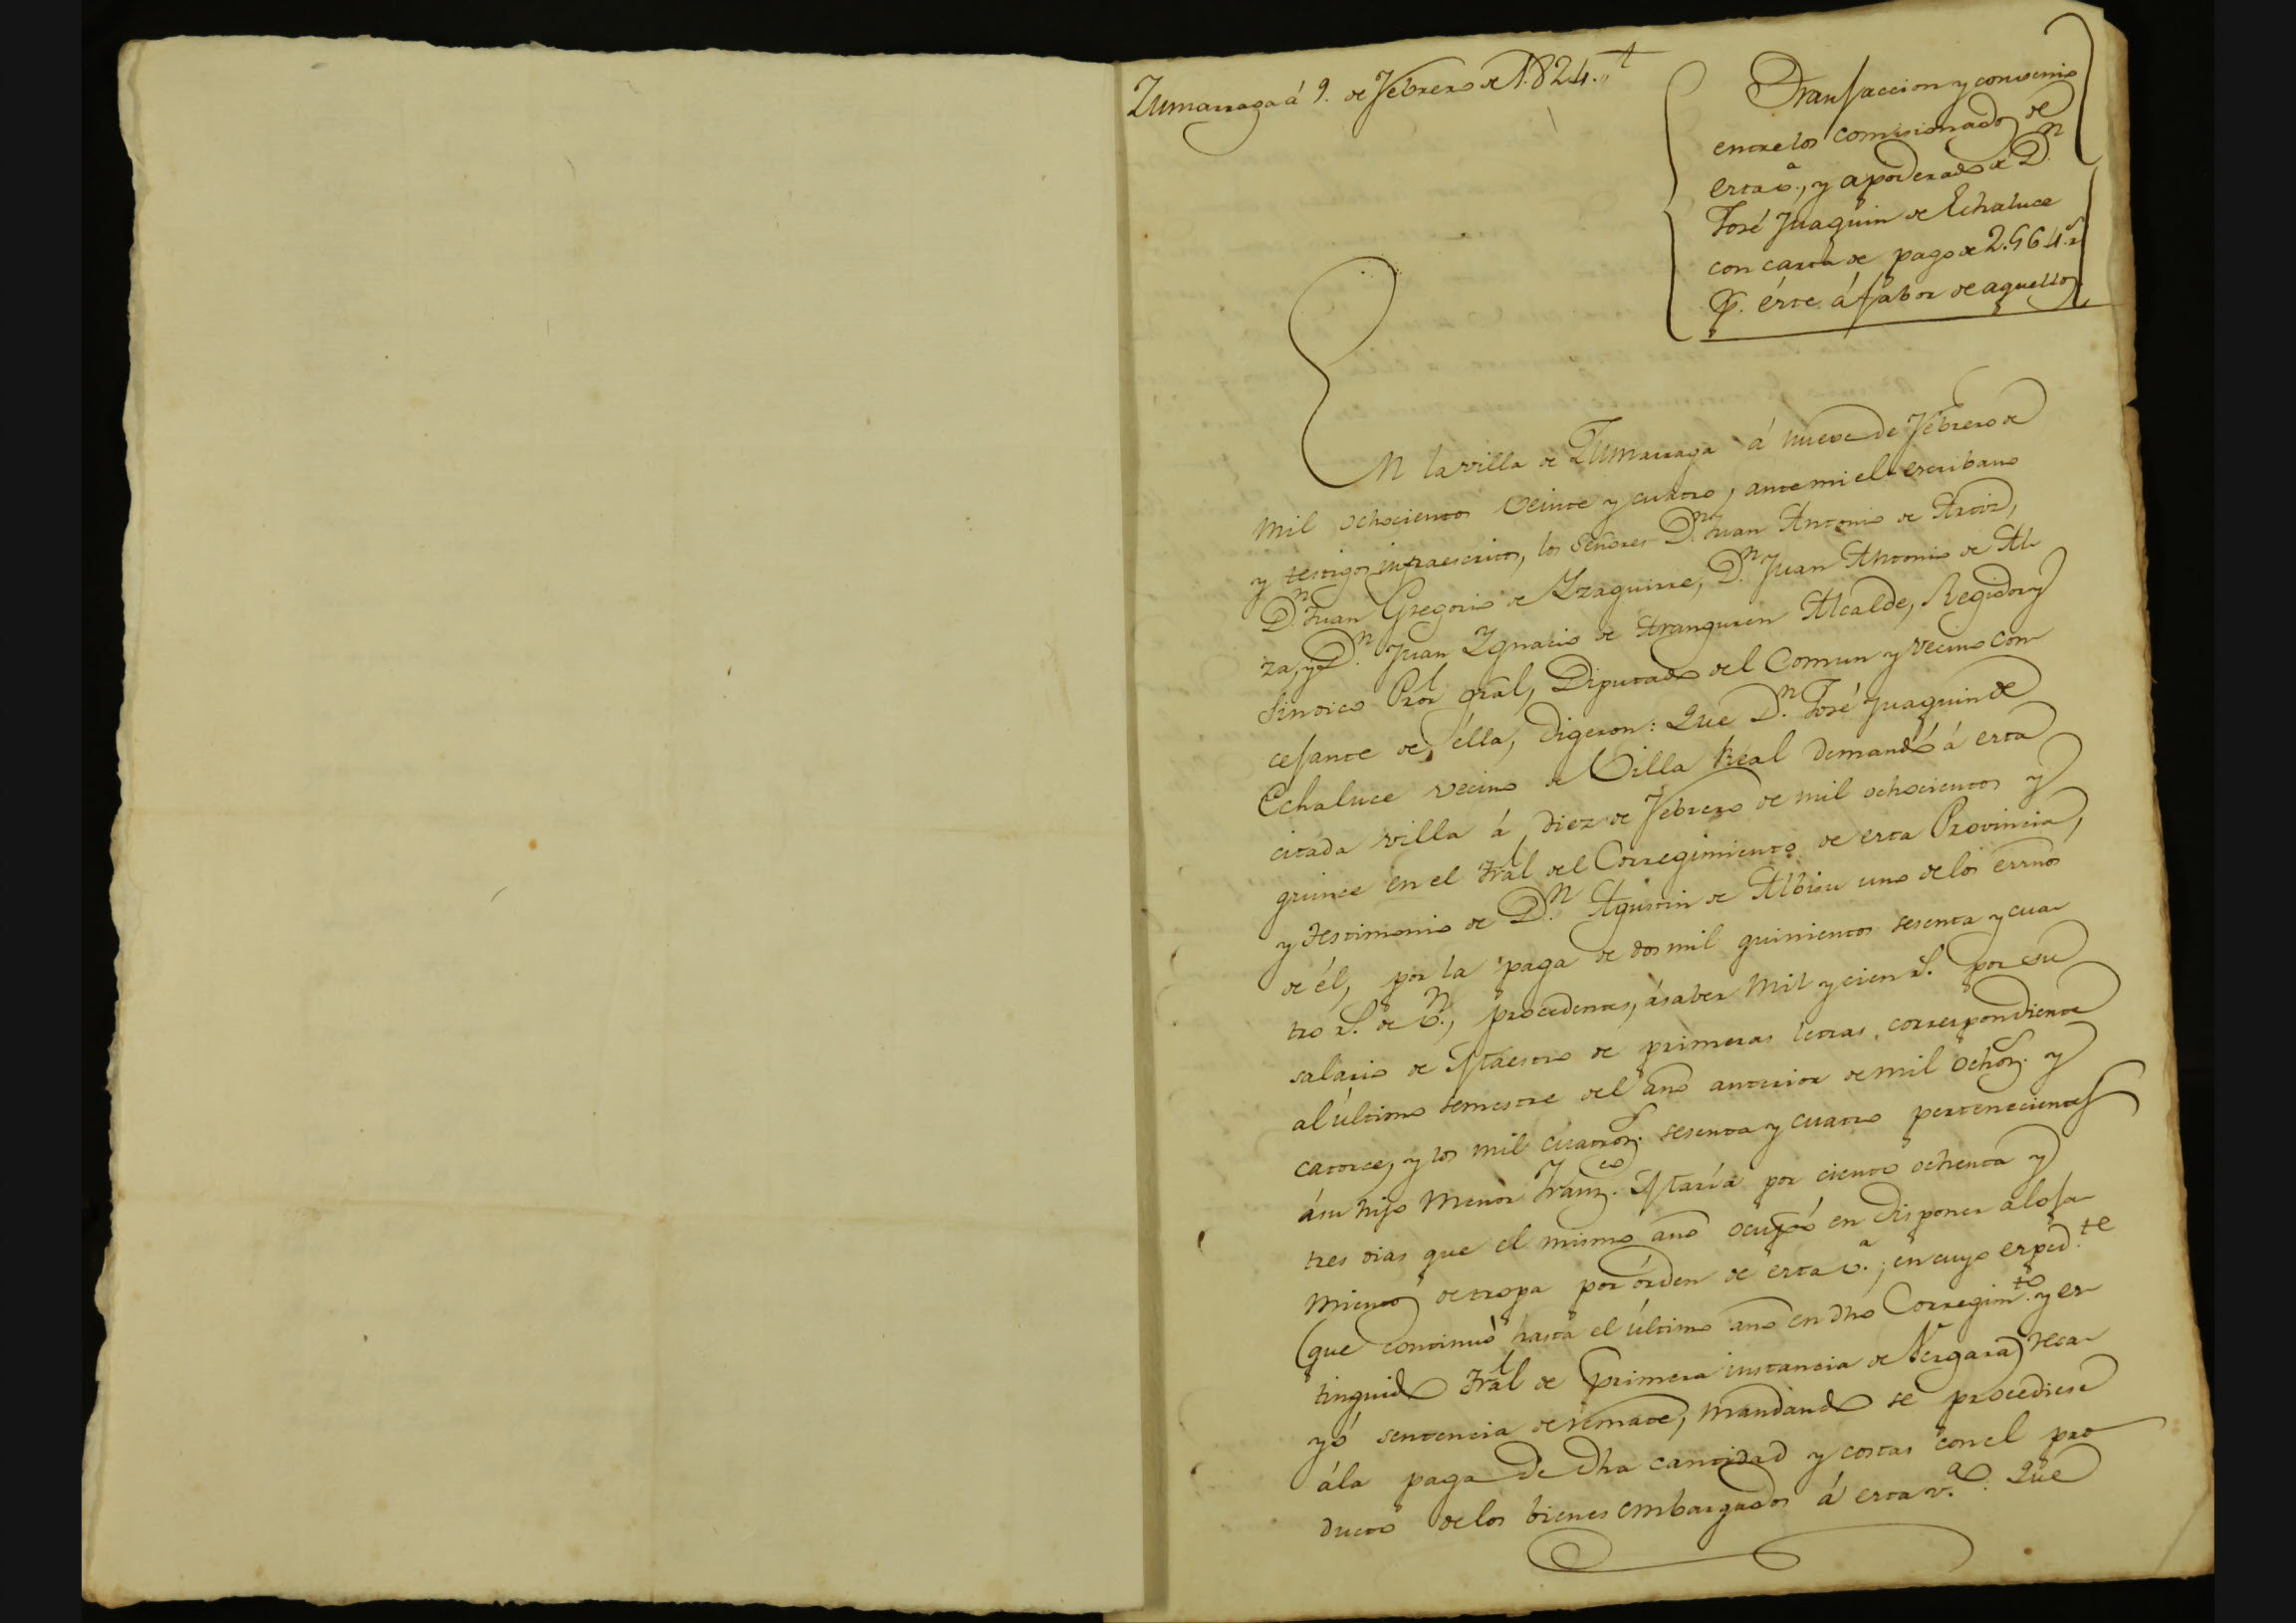 Zumarraga á 9. de Febrero de 1.824.
Transaccion y convenio
entre los comisionados de
esta v.ª, y apoderado de D.n
José Juaquin de Echaluce
con carta de pago de 2.564 rs
p. éste á fabor de aquellos
En la villa de Zumarraga á nueve de Febrero de
mil ochocientos veinte y cuatro, ante mi el escribano
y testigos infraescritos, los Señores D.n Juan Antonio de
D.n Juan Gregorio de Yzaguirre, D.n Juan Antonio de Al-
za, y D.n Juan Ygnacio de Aranguren Alcalde, Regidor y
Sindico Pror gral, Diputado del Comun y vecino con-
cesante de ella, digeron: Que D.n José Juaquin de
Echaluce vecino de Villa Real demandó á esta
citada villa á diez de Febrero de mil ochocientos y
quince en el Tral del Corregimiento de esta Provincia,
y testimonio de D.n Agustin de Albisu uno de los esnos
de él, por la paga de dos mil quinientos sesenta y cua-
tro rs. de v.n, procedentes, á saber mil y cien rs. por su
salario de Maestro de primeras letras correspondiente
al último semestre del año anterior de mil ochos. y
catorce, y los mil cuatros. sesenta y cuatro pertenecientes
á su hijo menor Franco. María por ciento ochenta y
tres dias que el mismo año ocupó en disponer aloja-
mientos de tropa por órden de esta v.ª; en cuyo exped.te
(que continuó hasta el último año en dho Corregim.to y es-
tinguido Tral de primera instancia de Vergara) reca-
yó sentencia de remate, mandando se procediese
á la paga de dha cantidad y costas con el pro-
ducto de los bienes embargados á esta v.ª: Que